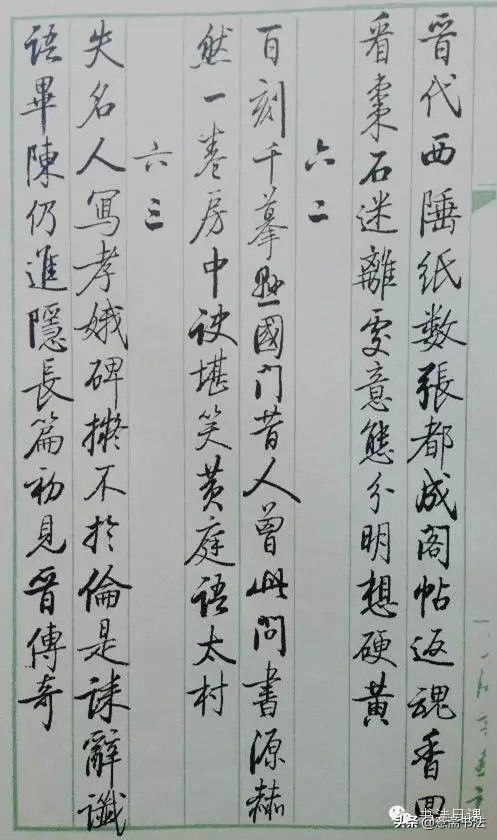 晉代西陲纸数張都成阁帖返魂香回
看棗石迷離處意態分明想硬黄
六二
百刻千摹懸國门昔人曾此問書源赫
然一卷房中诀堪笑黄庭语太村
六三
失名人寫孝娥碑擬不於倫是誄辭讖
語畢陳仍進隱長篇初見晉傳奇
书法日课
头条